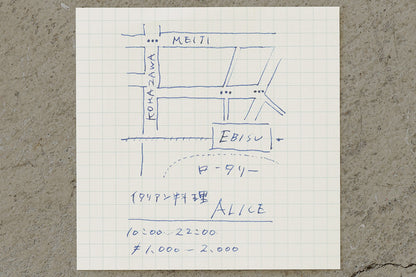 MEIJI
KOMAZAWA
EBISU
ロータリー
イタリアン料理
ALICE
10:00-22:00
¥1,000-2,000